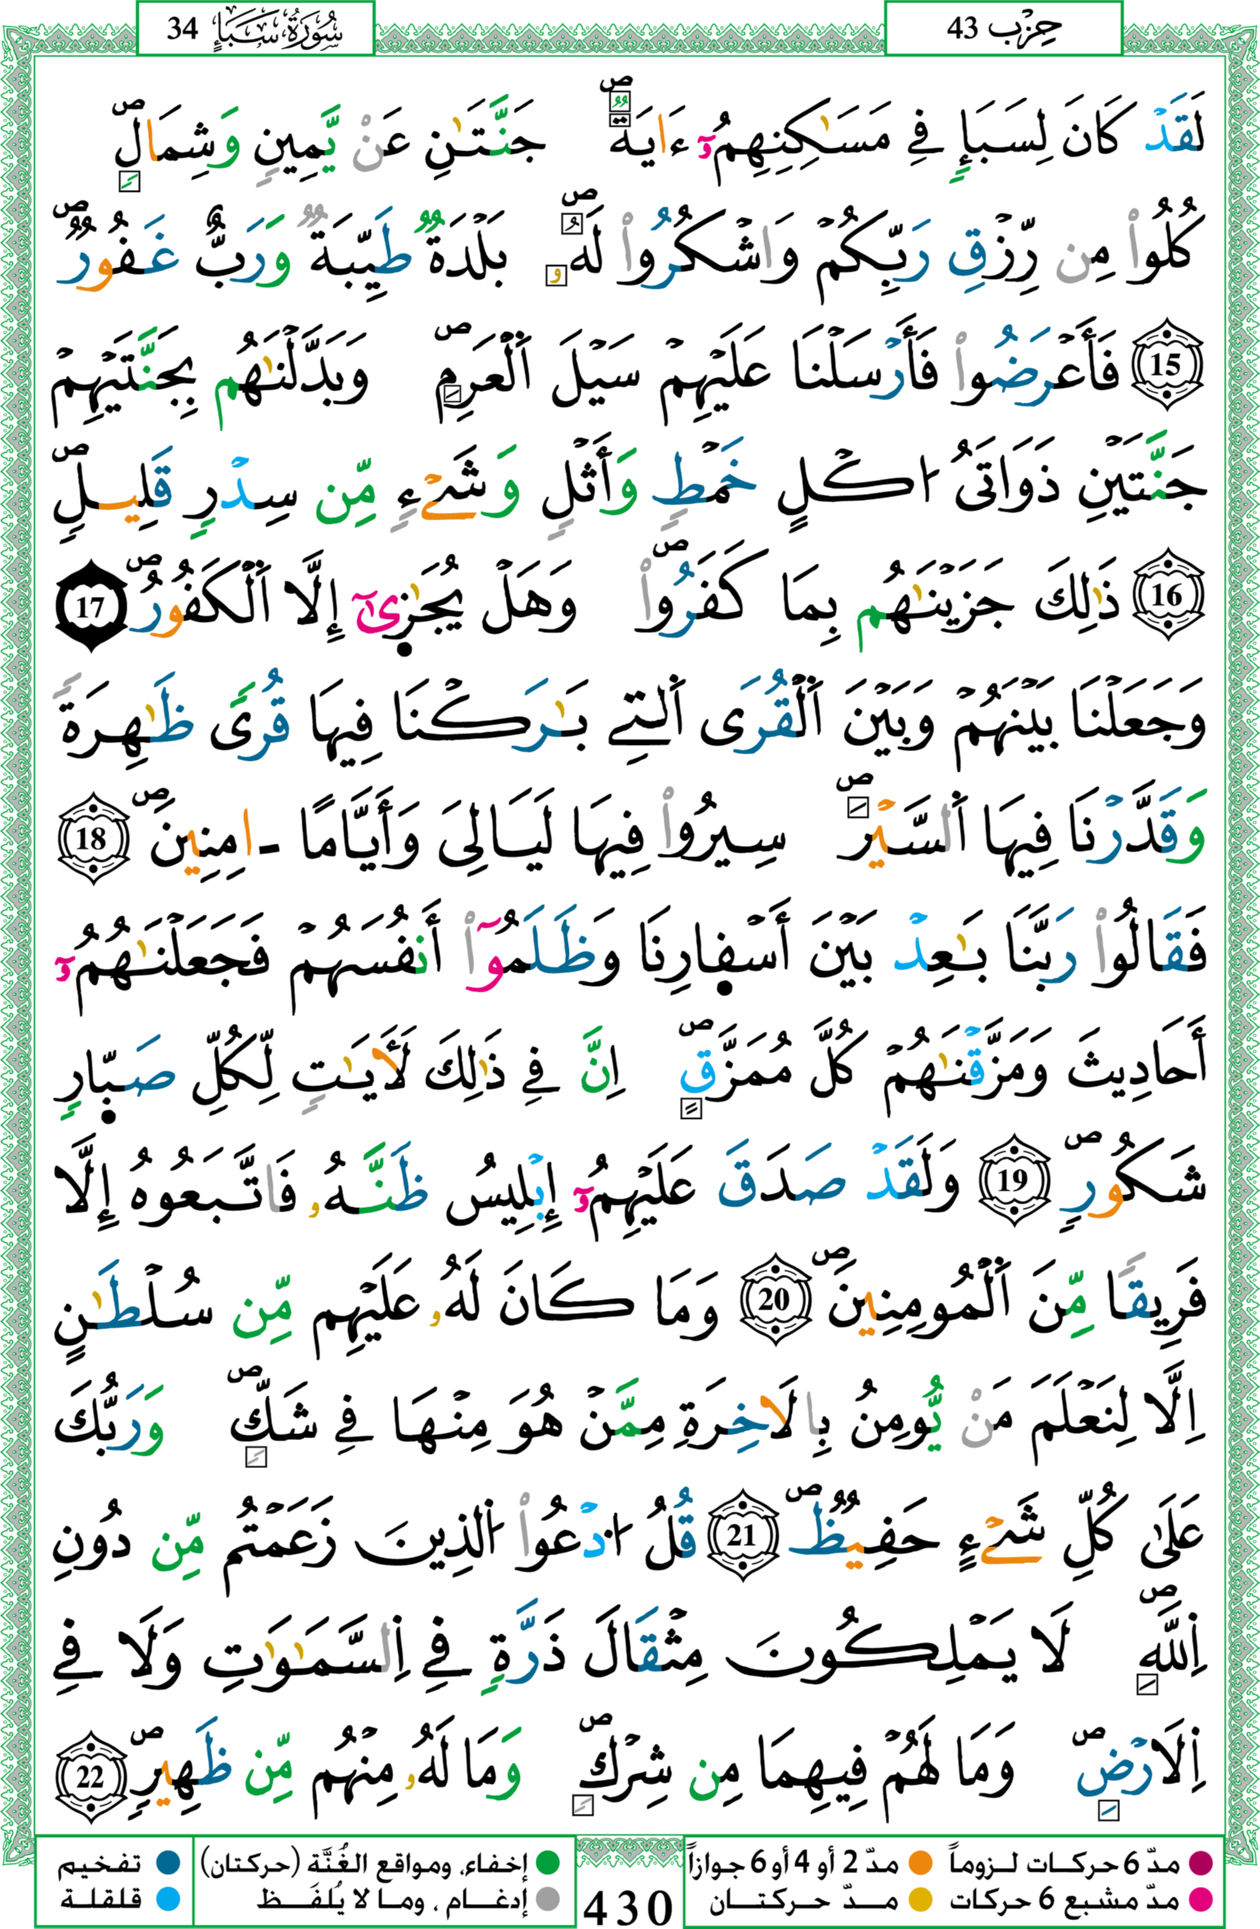 حِزْب 43
سُورَةُ سَبَإٍ 34
لَقَدْ كَانَ لِسَبَإٍ فِے مَسَٰكِنِهِمُۥٓ ءَايَةٞۖ جَنَّتَٰنِ عَنْ يَّمِينٖ وَشِمَالٖۖ
كُلُواْ مِن رِّزْقِ رَبِّكُمْ وَاشْكُرُواْ لَهُۥۖ بَلْدَةٞ طَيِّبَةٞ وَرَبٌّ غَفُورٞۖ
15 فَأَعْرَضُواْ فَأَرْسَلْنَا عَلَيْهِمْ سَيْلَ اَ۬لْعَرِمِۖ وَبَدَّلْنَٰهُم بِجَنَّتَيْهِمْ
جَنَّتَيْنِ ذَوَاتَىُ ا۟كْلٍ خَمْطٖ وَأَثْلٖ وَشَےْءٖ مِّن سِدْرٖ قَلِيلٖۖ
16 ذَٰلِكَ جَزَيْنَٰهُم بِمَا كَفَرُواْۖ وَهَلْ يُجَٰزِىٰٓ إِلَّا اَ۬لْكَفُورُۖ 17
وَجَعَلْنَا بَيْنَهُمْ وَبَيْنَ اَ۬لْقُرَى اَ۬لتِے بَٰرَكْنَا فِيهَا قُرىٗ ظَٰهِرَةٗ
وَقَدَّرْنَا فِيهَا اَ۬لسَّيْرَۖ سِيرُواْ فِيهَا لَيَالِىَ وَأَيَّاماً ـ امِنِينَۖ 18
فَقَالُواْ رَبَّنَا بَٰعِدْ بَيْنَ أَسْفِارِنَا وَظَلَمُوٓاْ أَنفُسَهُمْ فَجَعَلْنَٰهُمُۥٓ
أَحَادِيثَ وَمَزَّقْنَٰهُمْ كُلَّ مُمَزَّقٍۖ اِنَّ فِے ذَٰلِكَ لَأٓيَٰتٖ لِّكُلِّ صَبِّارٖ
شَكُورٖۖ 19 وَلَقَدْ صَدَقَ عَلَيْهِمُۥٓ إِبْلِيسُ ظَنَّهُۥ فَاتَّبَعُوهُ إِلَّا
فَرِيقاٗ مِّنَ اَ۬لْمُومِنِينَۖ 20 وَمَا كَانَ لَهُۥ عَلَيْهِم مِّن سُلْطَٰنٍ
اِلَّا لِنَعْلَمَ مَنْ يُّومِنُ بِالَاخِرَةِ مِمَّنْ هُوَ مِنْهَا فِے شَكّٖۖ وَرَبُّكَ
عَلَىٰ كُلِّ شَےْءٍ حَفِيظٞۖ 21 قُلُ ا۟دْعُواْ اُ۬لذِينَ زَعَمْتُم مِّن دُونِ
اِ۬للَّهِۖ لَا يَمْلِكُونَ مِثْقَالَ ذَرَّةٖ فِے اِ۬لسَّمَٰوَٰتِ وَلَا فِے
اِ۬لَارْضِۖ وَمَا لَهُمْ فِيهِمَا مِن شِرْكٖۖ وَمَا لَهُۥ مِنْهُم مِّن ظَهِيرٖۖ 22
مدّ 6 حركات لـزوماً مدّ 2 أو 4 أو 6 جوازاً
مدّ مشبع 6 حركات مـــدّ حركتـــان
430
إخفاء، ومواقع الغُنَّة (حركتان) تفخيم
إدغـام ، ومـا لا يُلفَـظ قلقلة